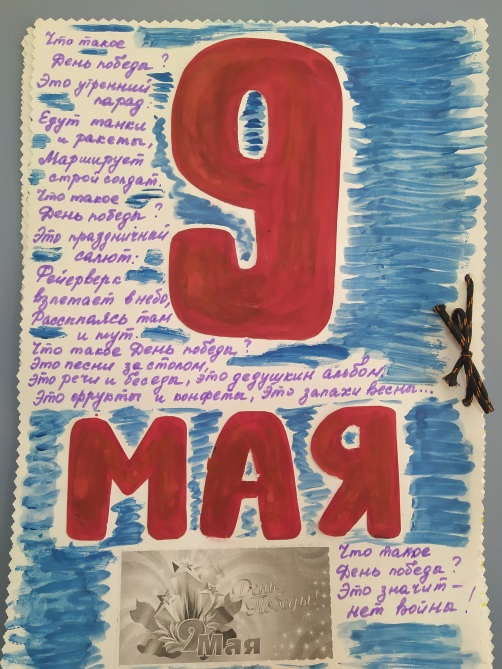 Что такое
День победы?
Это утренний
парад
Едут танки
и ракеты,
Марширует
строй солдат.
Что такое
День победы?
Это праздничный
салют:
Фейерверк
взлетает в небо,
Рассыпаясь там
и тут.
Что такое День победы?
Это песни за столом,
Это речи и беседы, это дедушкин альбом,
Это фрукты и конфеты, Это запахи весны...
9
МАЯ
День
Победы!
9 Мая
Что такое
День победы?
Это значит -
нет войны!